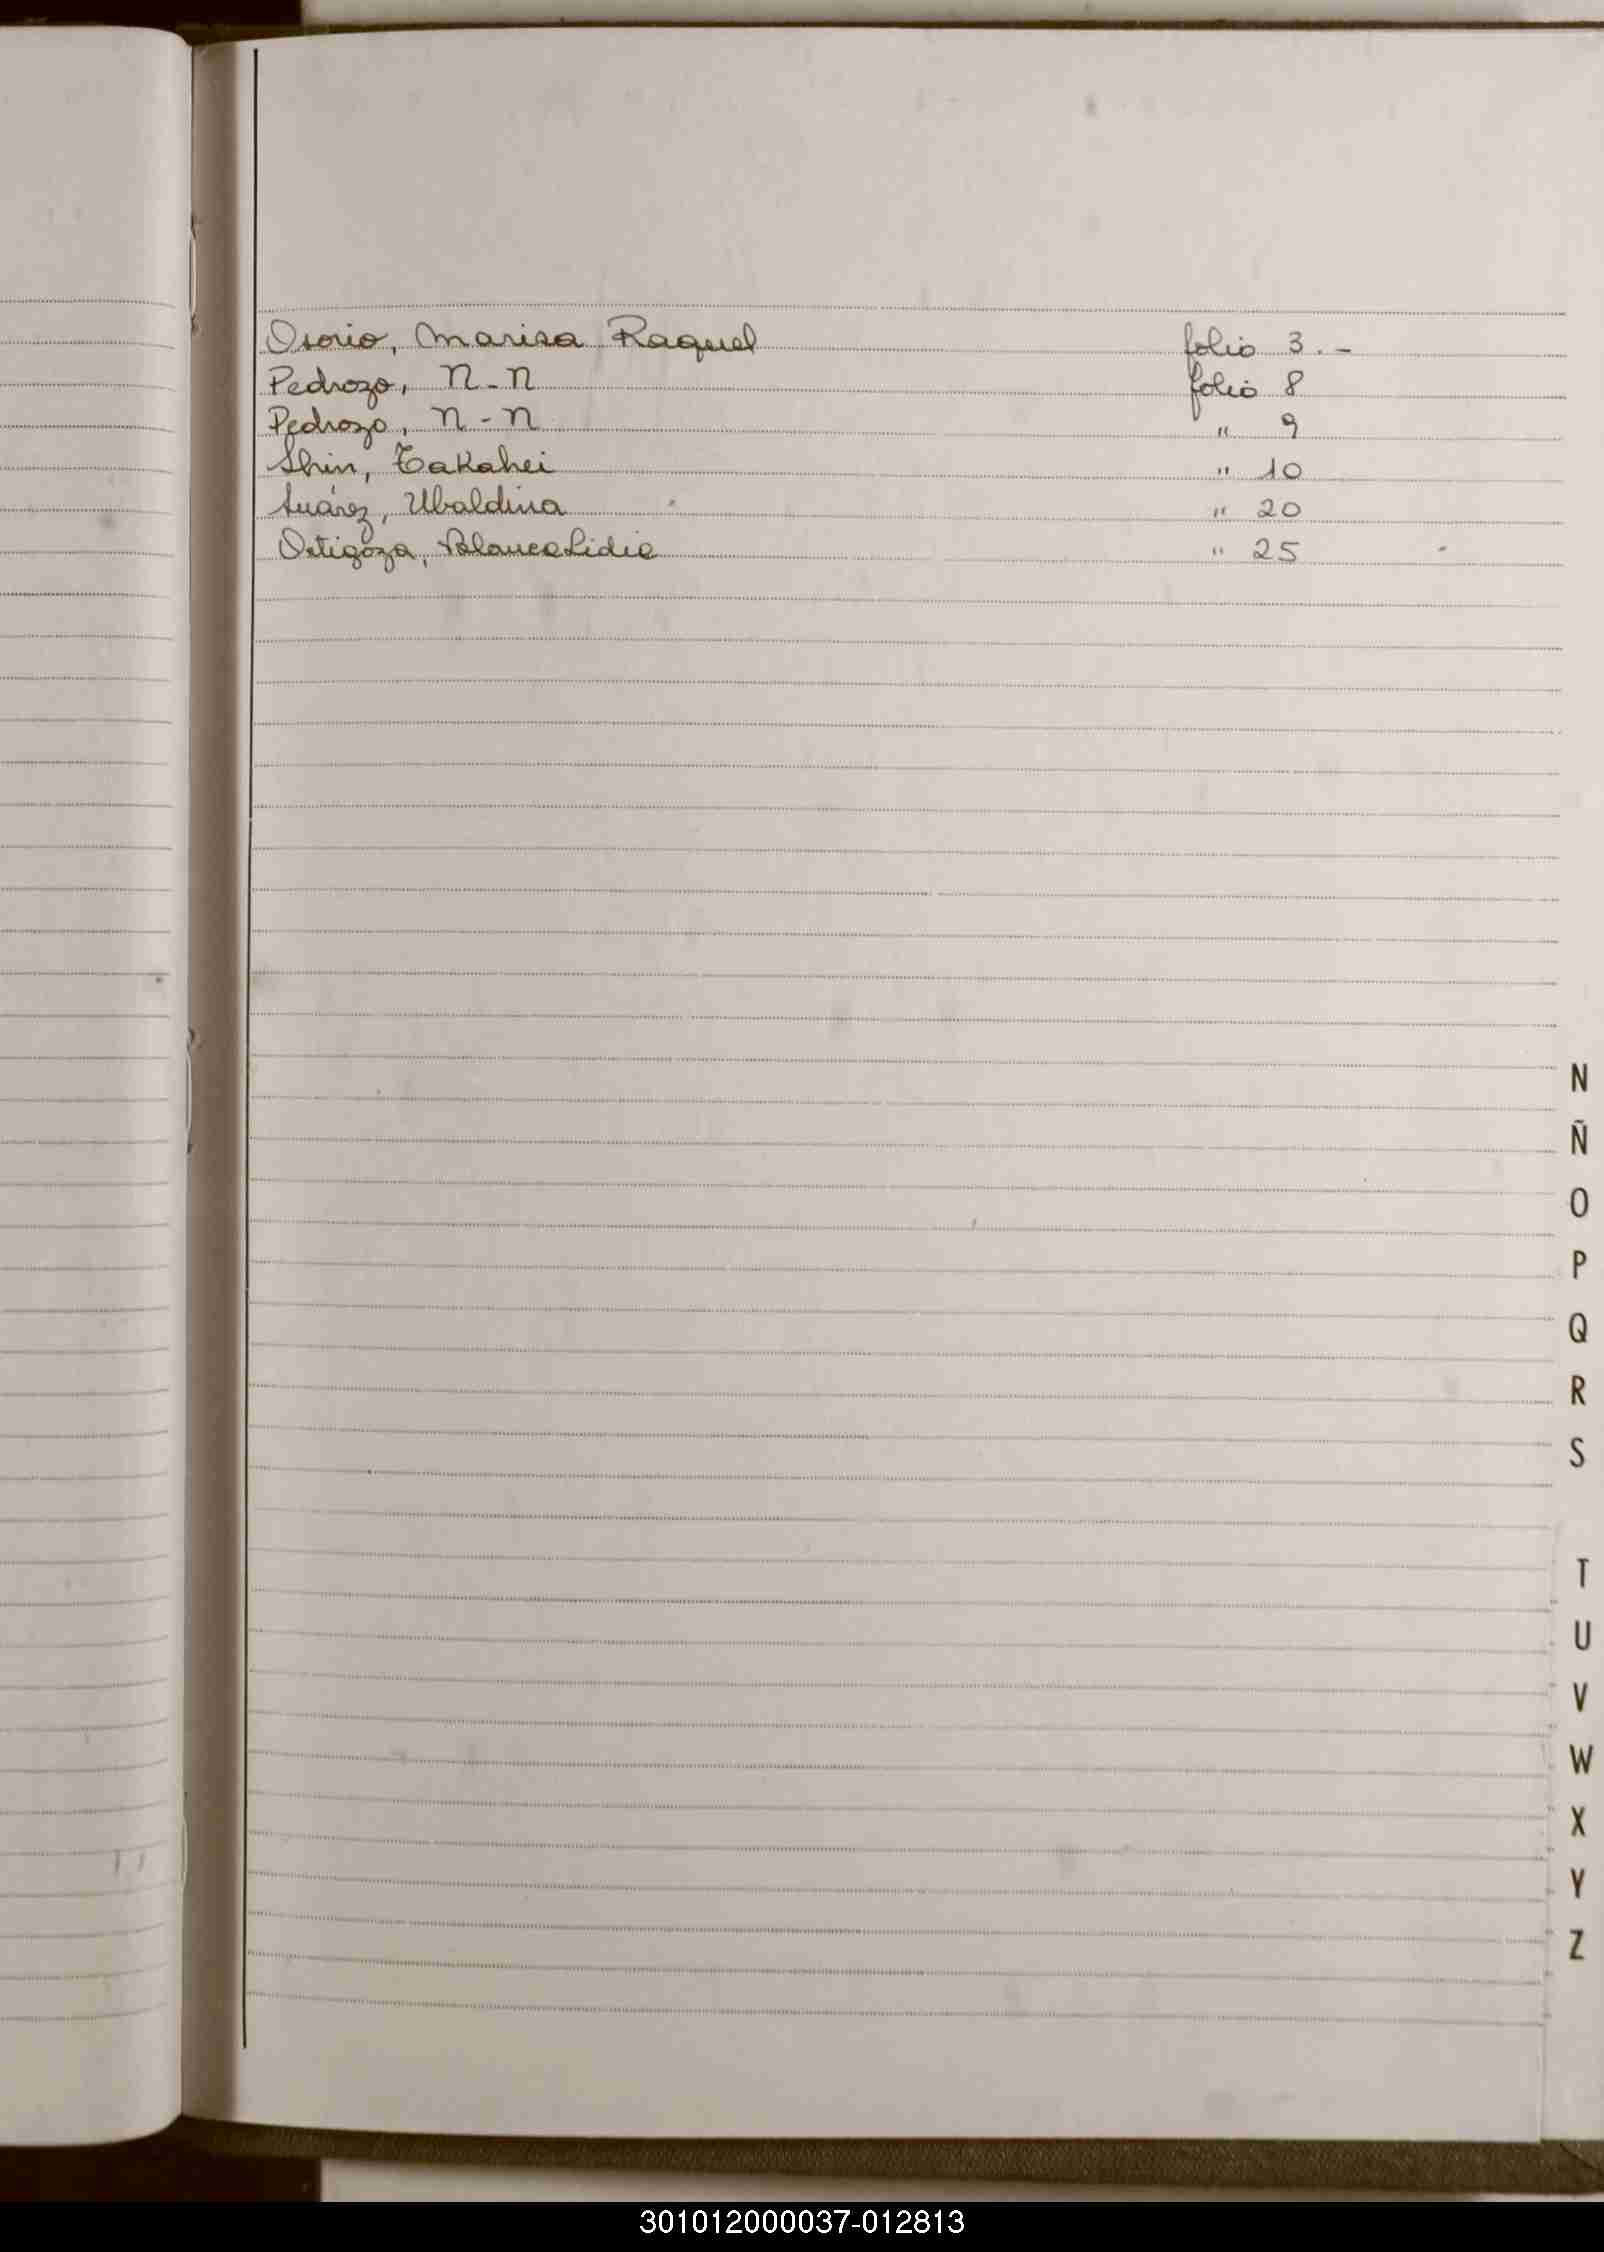 Osorio, Marisa Raquel folio 3.-
Pedrozo, N-N folio 8
Pedrozo, N-N " 9
Shin, Takahei " 10
Suárez, Ubaldina " 20
Ortigoza, Blanca Lidia " 25
N
Ñ
O
P
Q
R
S
T
U
V
W
X
Y
Z
301012000037-012813